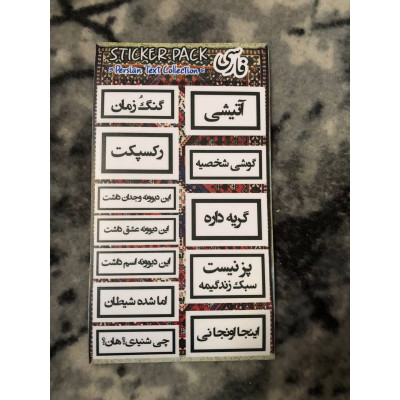 STICKER PACK
فارسی
Persian Text Collection
آتیشی
گنگ زمان
گوشی شخصیه
رکسپکت
گریه داره
این دیوونه وجدان داشت
این دیوونه عشق داشت
پز نیست
سبک زندگیمه
این دیوونه اسم داشت
اما شده شیطان
اینجا اونجا نی
چی شنیدی؟ هان؟